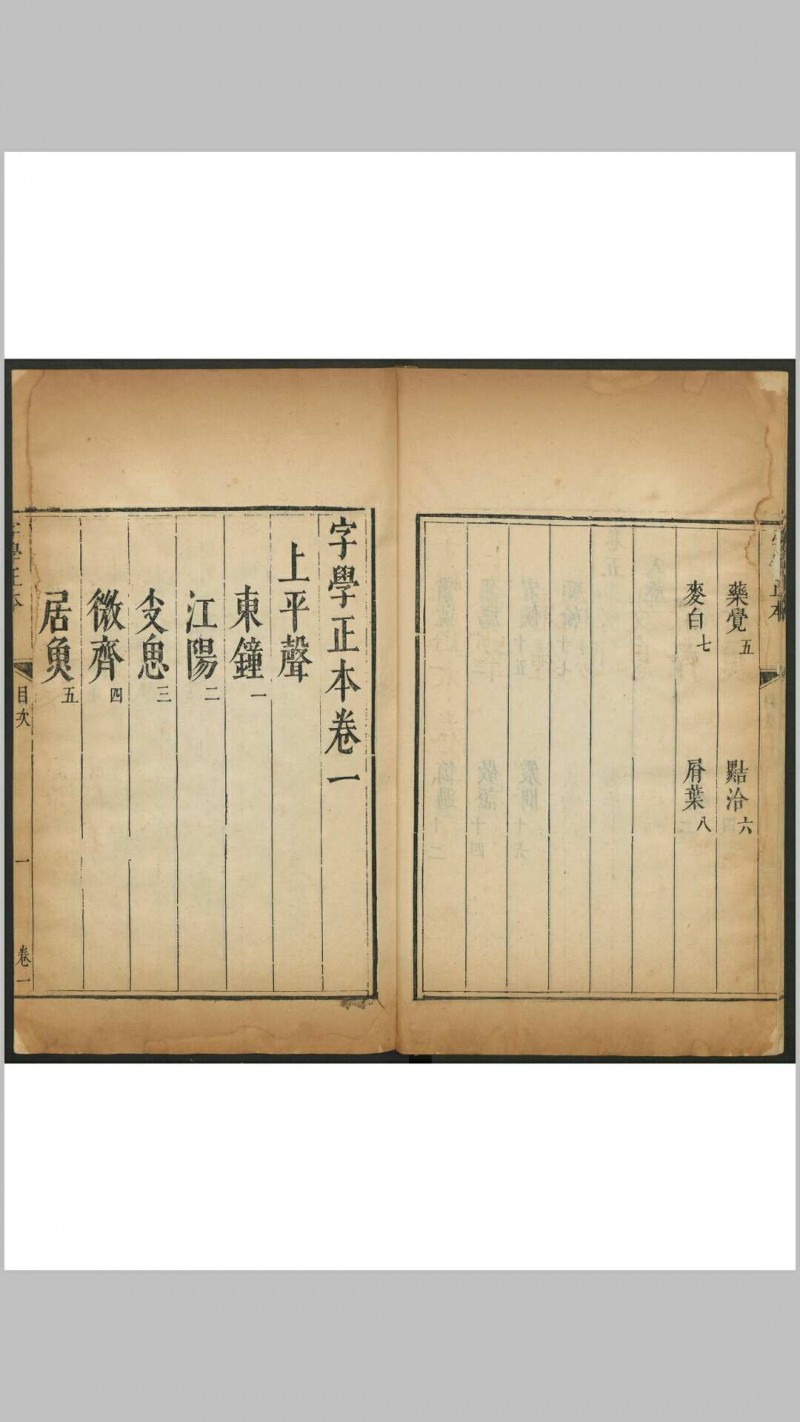 藥覺五　點洽六
麥白七　屑葉八
字學正本卷一
上平聲
東鐘一
江陽二
支思三
微齊四
居魚五
字學正本　目次　一　卷一